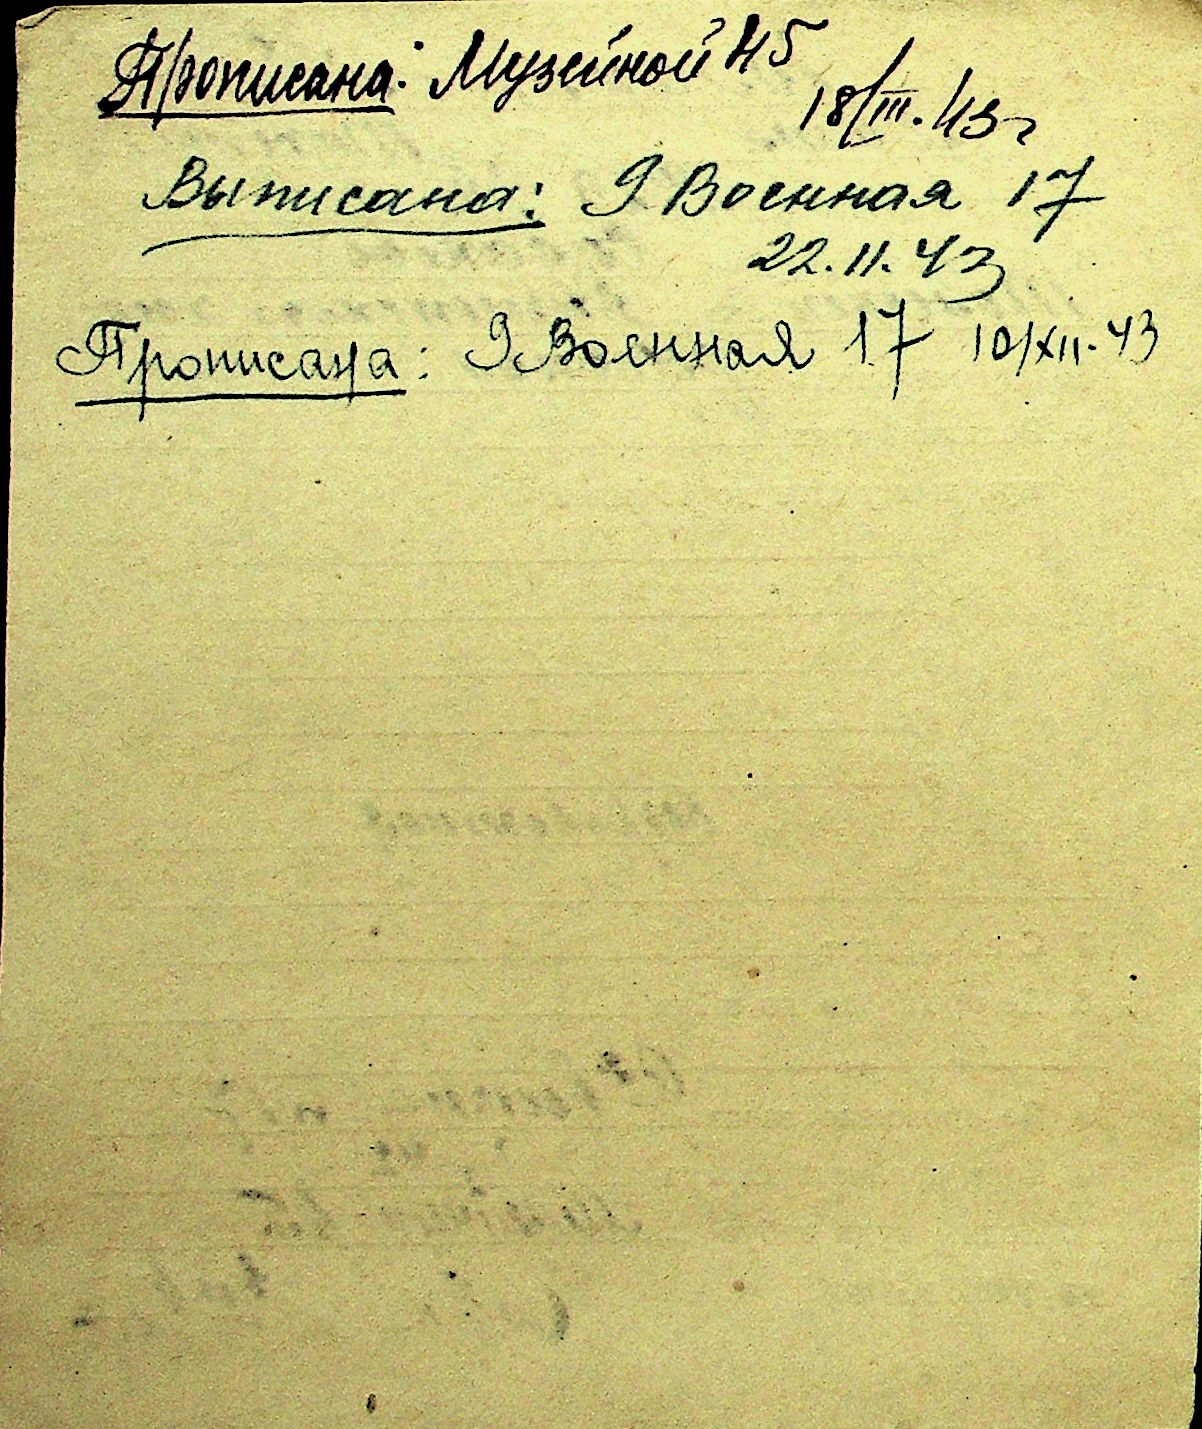 Прописана: Музейной 45
18/III.43г
Выписана: 9 Военная 17
22.11.43
Прописана: 9 Военная 17 10/XII.43